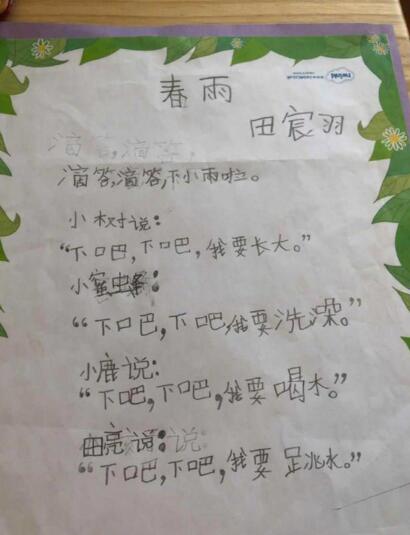 twinkl
春雨
田宸羽
滴答,滴答,
滴答,滴答,下小雨啦。
小树说:
“下吧,下吧,我要长大。”
小蜜虫
“下吧,下吧,我要洗澡。”
小鹿说:
“下吧,下吧,我要喝水。”
田亮说:说:
“下吧,下吧,我要跳水。”